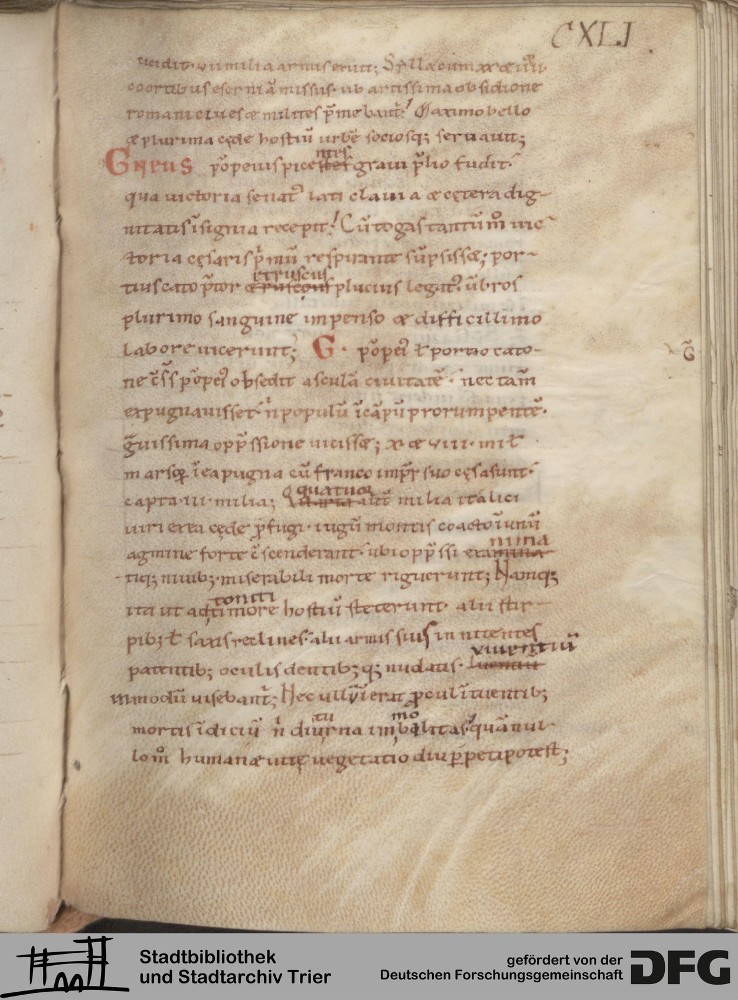 CXLI
cecidit. viii milia armis erutt; Sylla cum xx & iiii
coortibus eserniā missus. ub artissima obsidione
romani ciues & milites p̄mebant̃! Maximo bello
& plurima cęde hostiū urbē sociosq; seruauit;
Gneus pōpeius picentes graui p̄lio fudit.
qua uictoria senat⁹ lati claui a & cętera dig-
nitatis īsignia recepit! Cū togas tantūm̊ uic-
toria cęsaris p̄mū respirante sūpsisset; por-
tius cato p̄tor etruscus plucius legat⁹ ūbros
plurimo sanguine impenso & difficillimo
labore uicerunt; G. pōpei⁹ ł portio cato-
ne c̄ss pōpei⁹ obsedit asculā ciuitatē. nec tam̄
expugnauisset. n̄ populū ī cāpū prorumpentē.
ḡuissima opp̄ssione uicisset; x & viii. mił
marsoꝝ ī ea pugna cū franco imp̄r suo cęsa sunt.
capta. iii. milia; quatuor aut̄ milia italici
uiri ex ea cęde p̄fugi. iugū montis coacto ī unū
agmine forte c̄scenderant. ubi opp̄ssi exanima
tiq; niuib; miserabili morte riguerunt; Namq;
ita ut attoniti timore hostiū steterunt. alii stir-
pib; ł saxis reclines. alii armis suis innitentes
patentib; oculis dentib;q; nudatis. viuentiū
in modū uisebant̃; Nec ullū ierat p̄cul ītuentib;
mortis īdiciū n̄ diuturna immobilitas. quā nul-
lo m̊ humanæ uitę uegetatio diu p̄peti potest;
G̃
Stadtbibliothek
und Stadtarchiv Trier
gefördert von der
Deutschen Forschungsgemeinschaft
DFG